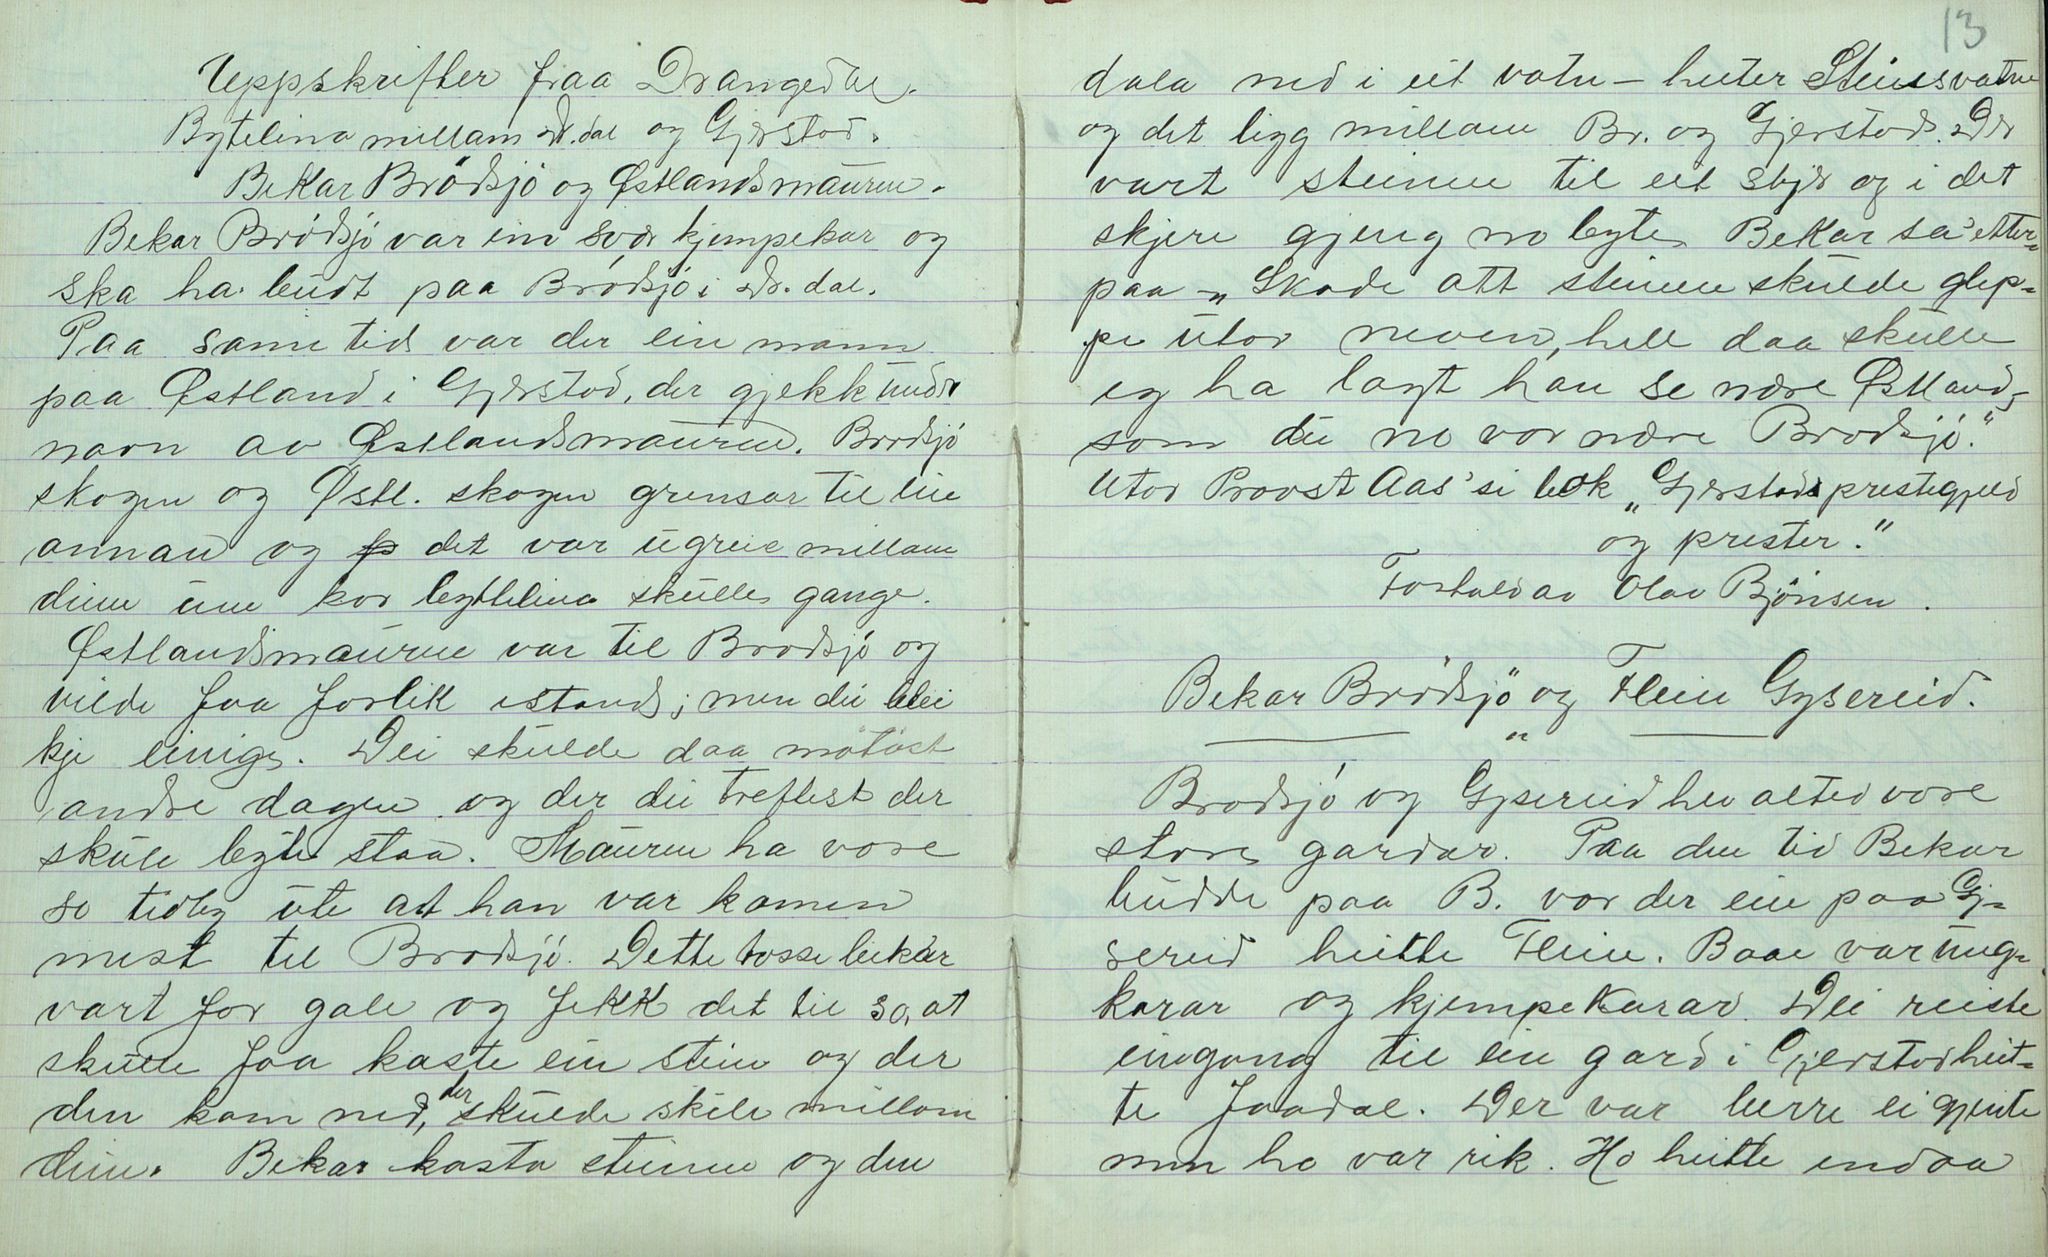 Uppskrifter fraa Drangedal.
Bytelina millam Dr.dal og Gjerstad.
Bekar Brødsjö og Østlandsmauren.
Bekar Brødsjö var ein svær kjempekar og
ska ha budt paa Brödsjö i Dr. dal.
Paa same tid var der ein mann
paa Østland i Gjerstad, der gjekk under
navn av Østlandsmauren. Brødsjö
skogen og Østl. skogen grensar til ein
annan og det var ugreie millam
deim um kor bytelina skulle gange.
Østlandsmauren var til Brodsjö og
vilde faa forlik istand; men dei blei
kje einige. Dei skulde daa mötast
andre dagen og der dei treftest der
skule byte staa. Mauren ha vore
so tidleg ute at han var komen
mest til Brodsjö. Dette tosse bekar
vart for gale og fekk det til so, at
skulle faa kaste ein stein og der
den kom ned, der skulde skile millom
deim. Bekar kasta steinen og den
13
dala ned i eit vatn – heiter Steinsvatne
og det ligg millam Br. og Gjerstad. Der
vart steinen til eit skjer og i det
skjere gjeng no byte. Bekar sa' etter=
paa – „Skade att steinen skulde glep=
pe utor neven, hell daa skulle
eg ha lagt han se nære Østland,
som du no vor nære Brodsjö."
Utor Provst Aas' si bok „Gjerstads prestegjeld
og prester."
Fortald av Olav Bjönsen.
Bekar Brødsjö og Flein Gysereid.
Brodsjö og Gysereid hev altid vore
store gardar. Paa den tid Bekar
budde paa B. vor der ein paa Gj=
sereid heitte Flein. Baae var ung=
karar og kjempekarar. Dei reiste
eingong til ein gard i Gjerstad heit=
te Jaadal. Der var berre ei gjente
men ho var rik. Ho heitte endaa